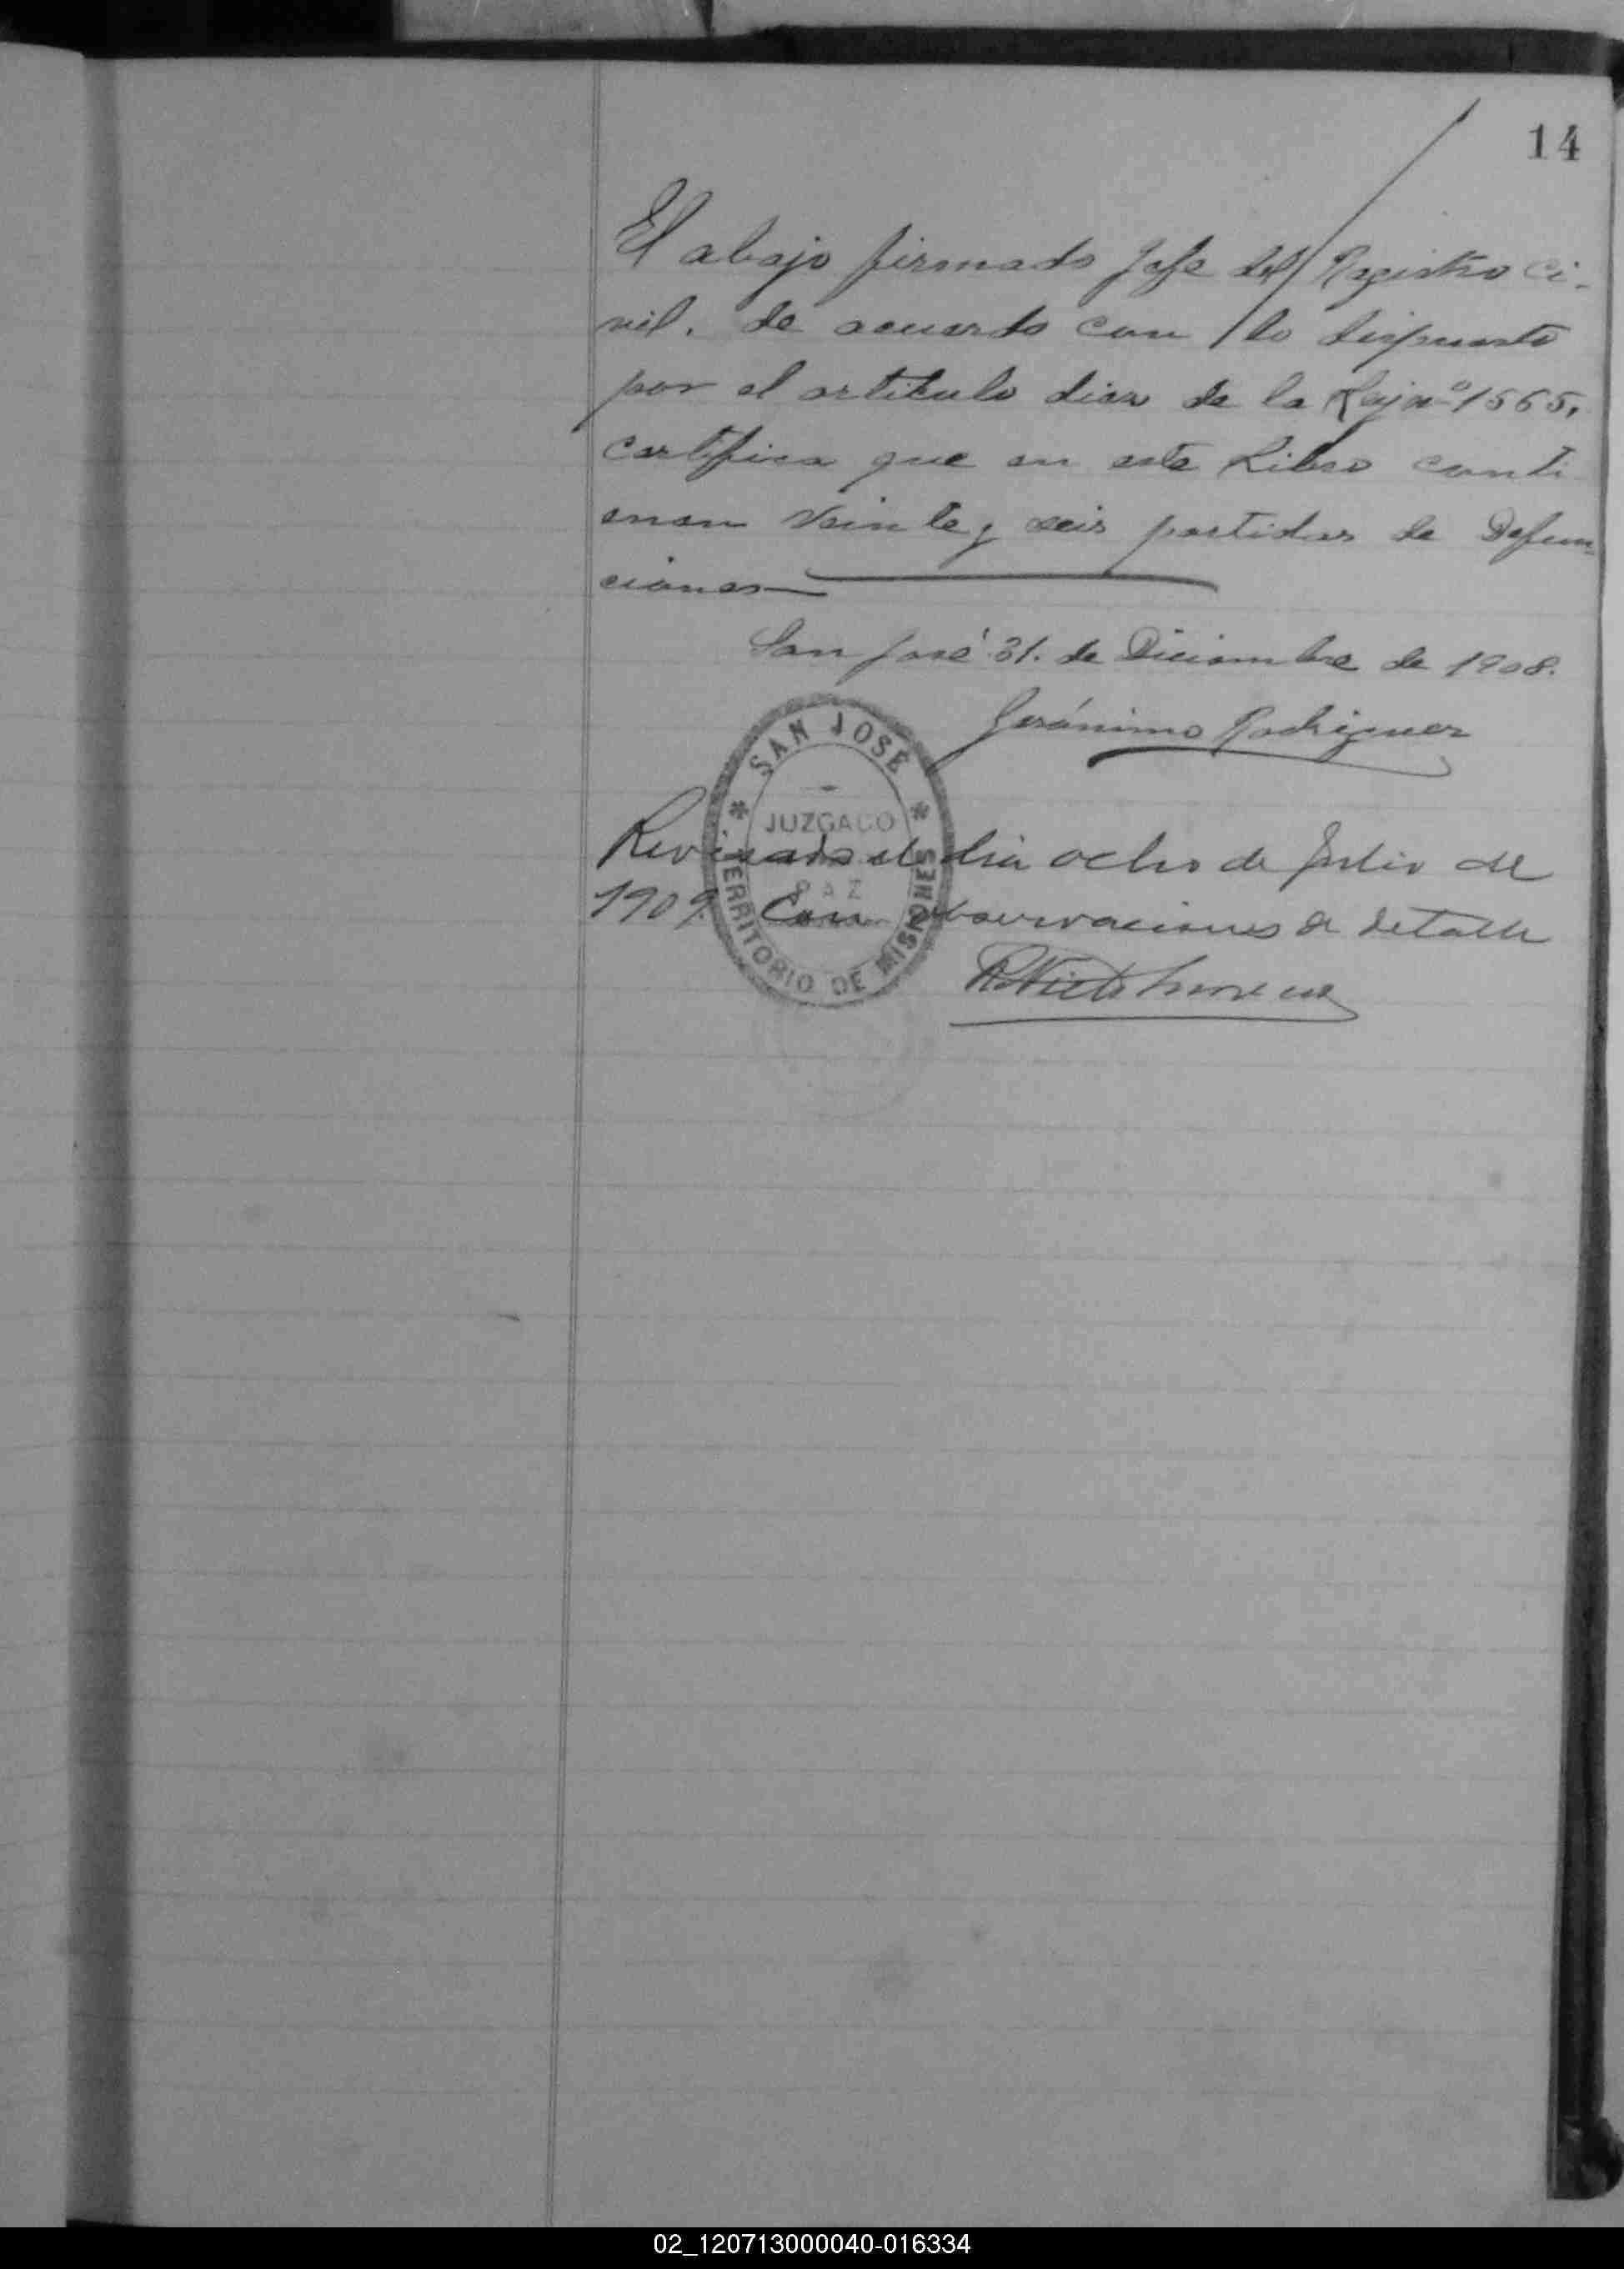 14
El abajo firmado Jefe del Registro Ci-
vil, de acuerdo con lo dispuesto
por el artículo diez de la Ley nº 1565,
certifica que en este Libro conti
enen veinte y seis partidas de Defun-
ciones
San José 31. de Diciembre de 1908.
Gerónimo Rodriguez
SAN JOSÉ
JUZGADO
PAZ
TERRITORIO DE MISIONES
Revisado el dia ocho de Julio de
1909. Con observaciones de detalle
02_120713000040-016334